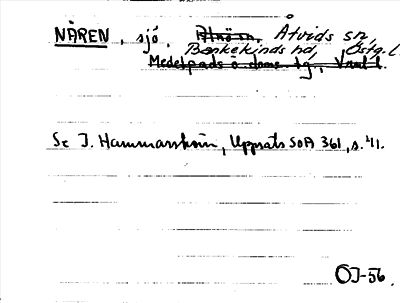 NÄREN, sjö, Alnö sn, Åtvids sn,
Bankekinds hd, Östg. l.
Medelpads ö. doms. tg,
Se J. Hammarström, Uppsats SOA 361, s. 41.
OJ-56.